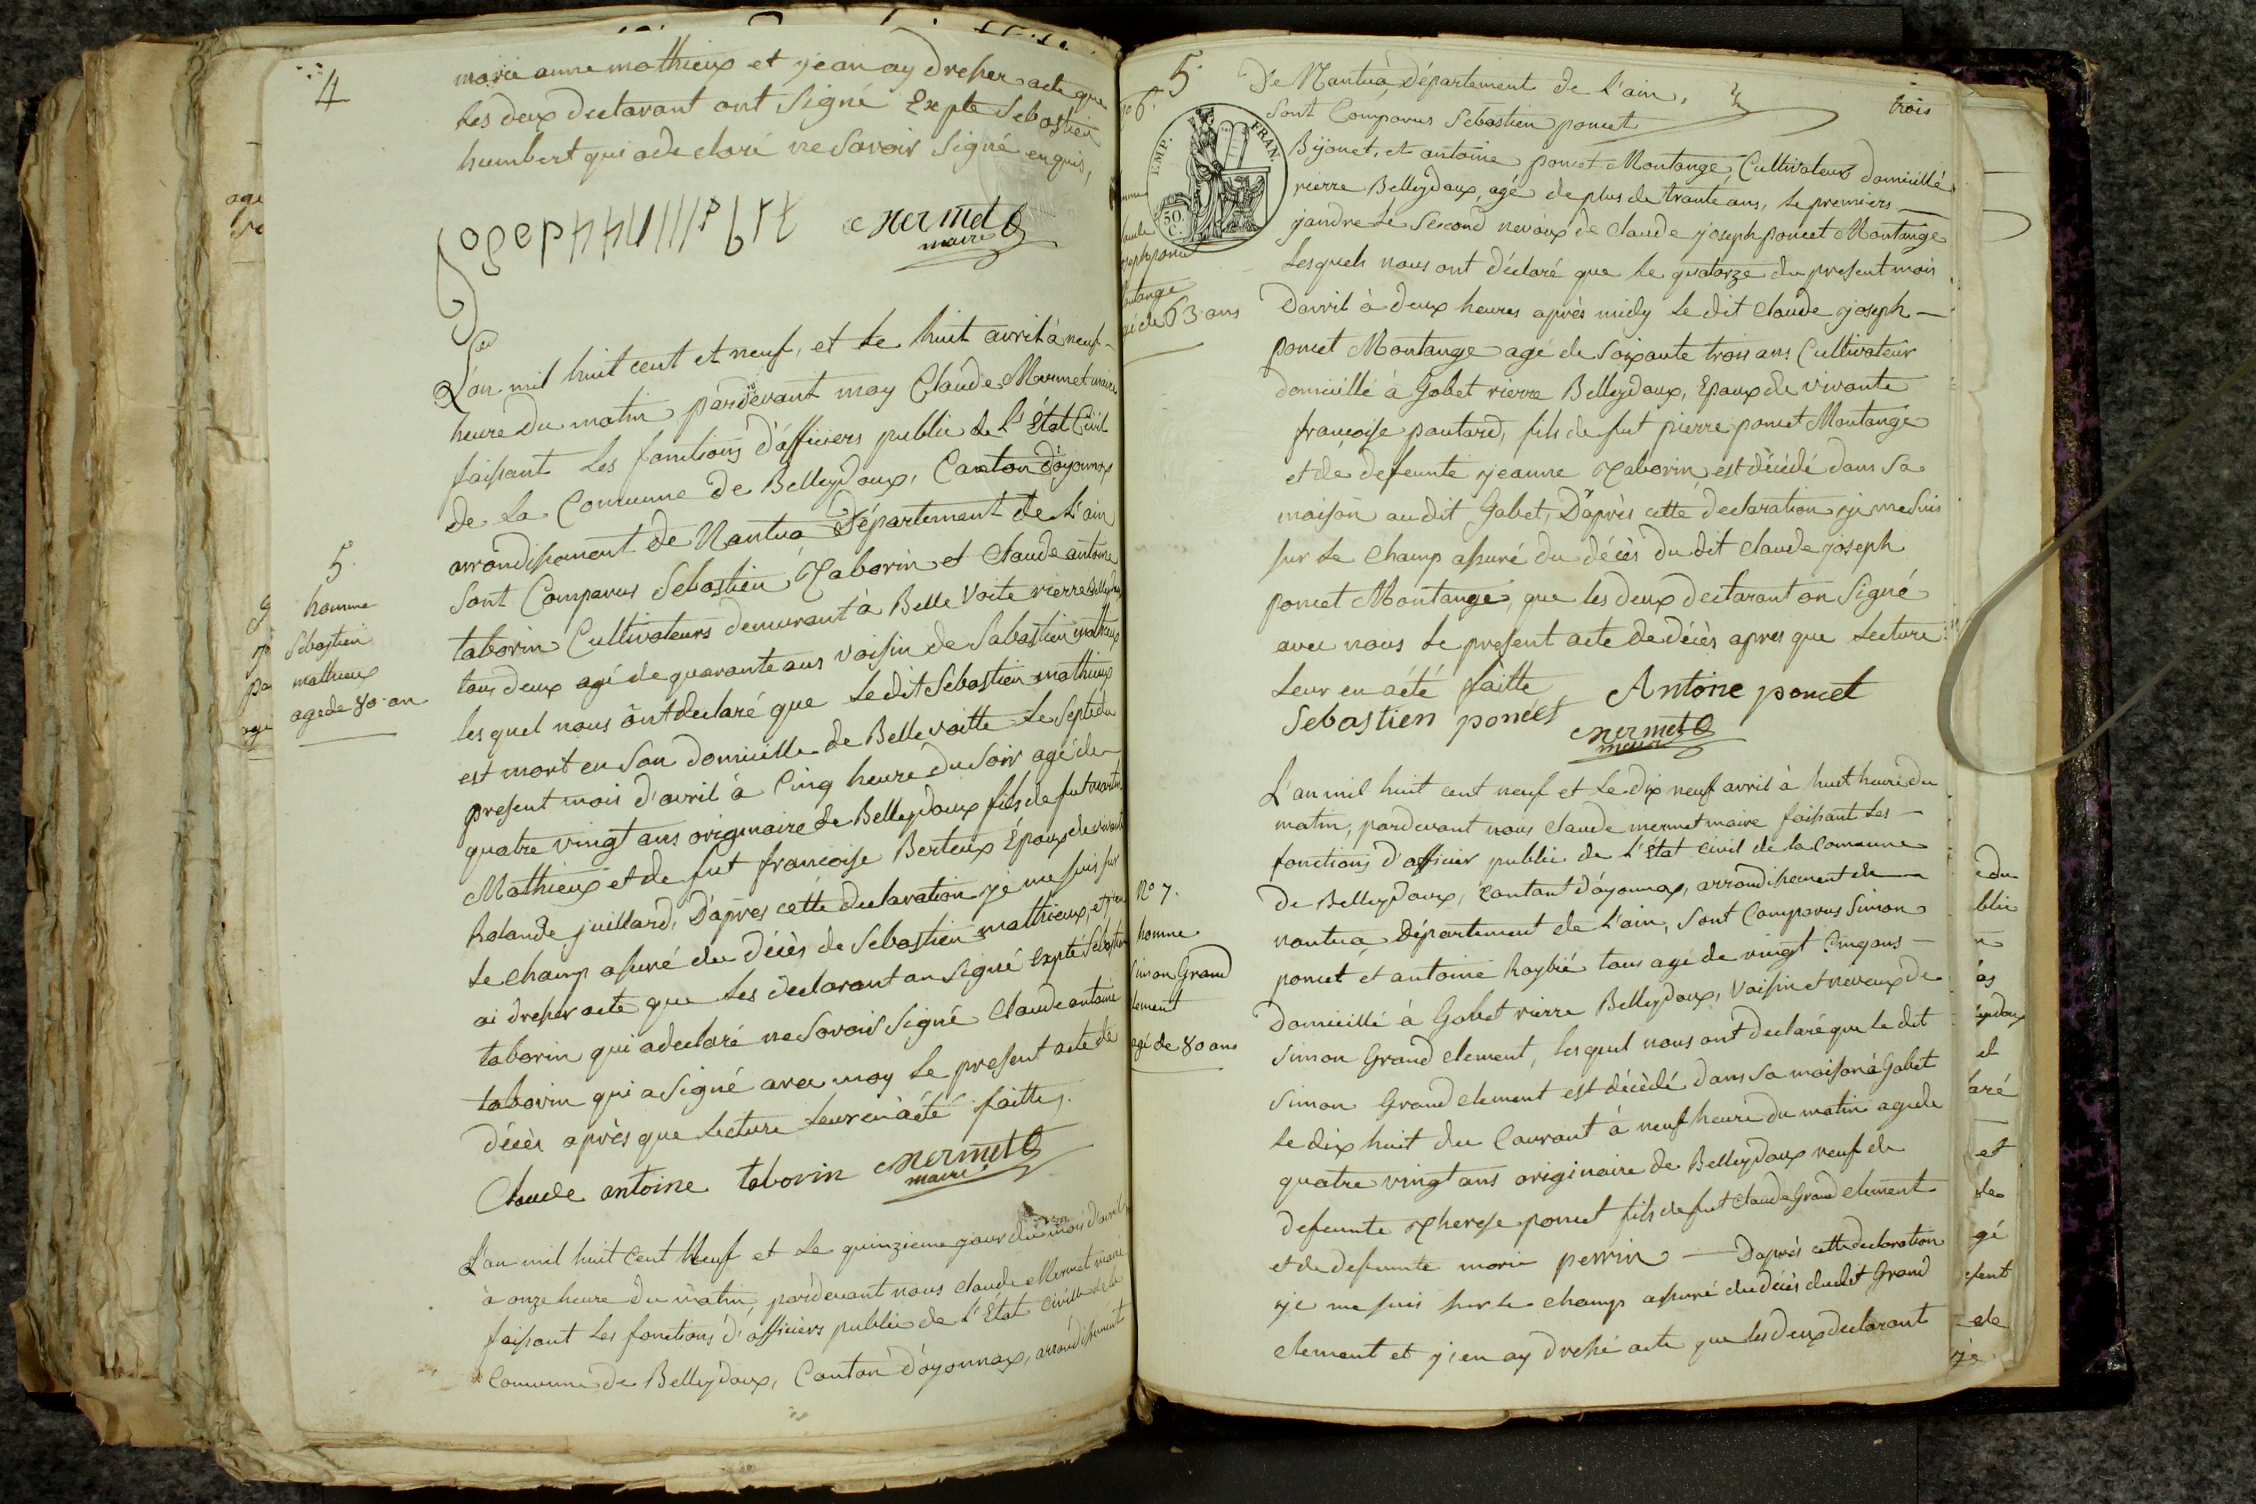 4
marie anne mathieux et jean ay dresser acte que
les deux declarant ont Signé Expte Sebastien
humbert qui adeclaré ne Savoir Signé enquis,
mermet
maire
5.
homme
Sebastien
mathieux
agede 80 an
L'an mil huit cent et neuf, et le huit avril à neuf
heure du matin pardevant moy Claude Mermet maire
faisant les fonctions d'afficiers public de L'État Civil
de La Commune de Belleydoux, Canton d'oyonnax
arrondissement de Nantua Département de L'ain
Sont Comparus Sebastien Taborin et Claude antoine
taborin Cultivateurs demeurant à Belle Voite rierre Belleydoux
tous deux agé de quarante ans voisin de Sabastien mathieux
lesquel nous ont declaré que le dit Sebastien mathieux
est mort en Son domicille de Belle voitte Le Septe du
present mois d'avril à Cinq heure du Soir agé de
quatre vingt ans originaire de Belleydoux fils de fut martin
Mathieux et de fut francoise Berteux Epoux de vivante
Rolande juillard, D'apres cette declaration je me suis sur
le champ assuré du décès de Sebastien mathieux, et j'en
ai dresser acte que les declarant on Signé Expté Sebastien
taborin qui adeclaré ne Savoir Signé Claude antoine
taborin qui a Signé avec moy le present acte de
décès après que lecture leur en à été faitte.
Claude antoine taborin mermet
maire
L'an mil huit Cent Neuf et le quinzieme jour du mois d'avril
à onze heure du matin, pardevant nous claude Mermet maire
faisant les fonctions d'officiers public de L'État Civille de la
Commune de Belleydoux, Canton d'oyonnax, arrondissement
5
trois
no 6.
EMP. FRAN.
50 C.
joseph poncet
montange
agé de 63 ans
De Nantua Département de L'ain,
Sont Comparus Sebastien poncet
Bijouet, et antoine poncet Montange, Cultivateur domicillé
rierre Belleydoux, agé de plus de trante ans, le premiers
jandre le Second neveux de Claude joseph poncet Montange
Lesquels nous ont déclaré que le quatorze du present mois
D'avril à deux heures après midy le dit Claude joseph
poncet Montange agé de Soixante trois ans Cultivateur
domicillé à Gobet rierre Belleydoux, Epoux de vivante
françoise pautard, fils de fut pierre poncet Montange
et de defeunte jeanne Taborin est décédé dans Sa
maison au dit Gobet, D'après cette declaration je me Suis
sur le Champ assuré du décès du dit Claude joseph
poncet Montange, que les deux declarant on Signé
avec nous le present acte de décès apres que lecture
leur en a été faitte Antoine poncet
Sebastien poncet
mermet
maire
No 7.
homme
Simon Grand
clement
agé de 80 ans
L'an mil huit cent neuf et le dix neuf avril à huit heure du
matin, pardevant nous claude mermet maire faisant les
fonctions d'officier public de L'État civil de la Commune
de Belleydoux, Cantant d'oyonnax, arrondissement de
nantua Département de L'ain, Sont Comparus Simon
poncet et antoine Raybié tous agé de vingt Cinq ans
Domicillé à Gobet rierre Belleydoux, Voisin et neveux de
Simon Grand clement, lesquel nous ont declaré que le dit
Simon Grand clement est décédé dans Sa maison à Gobet
le dix huit du Courant à neuf heure du matin agé de
quatre vingt ans originaire de Belleydoux veuf de
defeunte Therese poncet fils de fut Claude Grand clement
et de defeunte marie perrin D'après cette declaration
je me suis sur le champ assuré du décès dudit Grand
clement et j'en ay dressé acte que les deux declarant